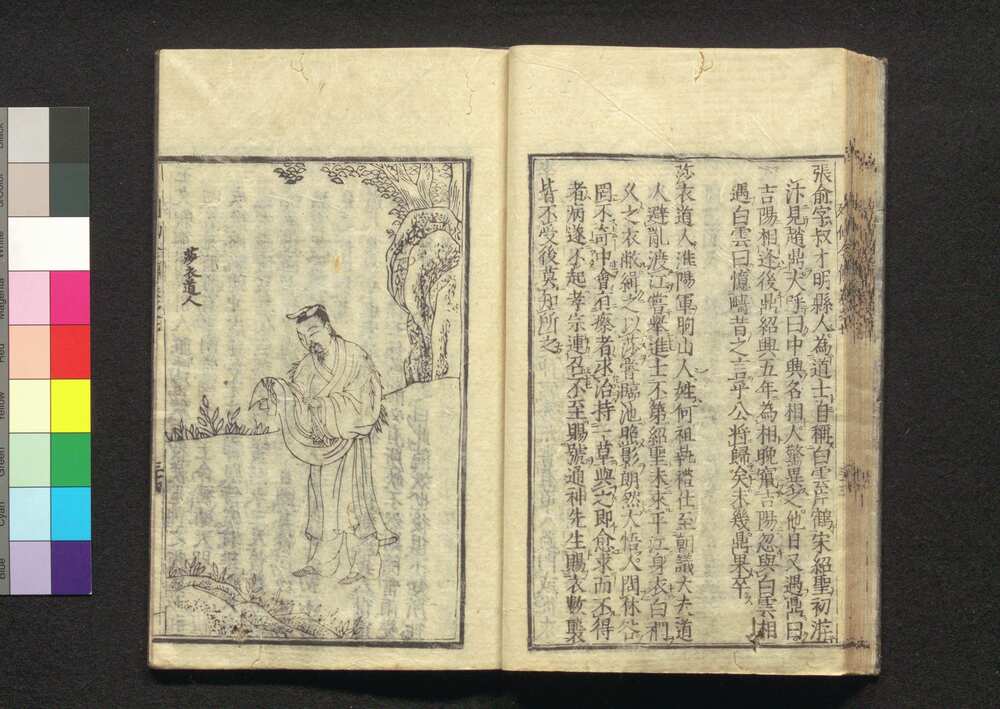 張俞字叔才明縣人為道士自稱白雲片鶴宋紹聖初游
汴見趙鼎大呼曰中興名相人驚異之他日又遇鼎曰
吉陽相逢後鼎紹興五年為相晚竄吉陽忽與白雲相
遇白雲曰憶疇昔之言乎公將歸矣未幾鼎果卒
莎衣道人淮陽軍朐山人姓何祖執禮仕至朝議大夫道
人避亂渡江嘗舉進士不第紹聖末來平江身衣白襴
久之衣敝緝之以莎嘗臨池照影朗然大悟人問休咎
罔不奇中會有瘵者求治持一草與之即愈求而不得
者病遂不起孝宗連召不至賜號通神先生賜衣數襲
皆不受後莫知所之
莎衣道人
三十四
Blue
Cyan
Green
Yellow
Red
Magenta
White
Black